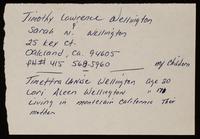 Timothy Lawrence Wellington
&
Sarah N. Wellington
25 Key Ct.
Oakland, Ca. 94605
PH# 415 568-5960
my children
Tinettra Denise Wellington Age 20
Lori Aleen Wellington " 178
Living in montclair California Thier
mother